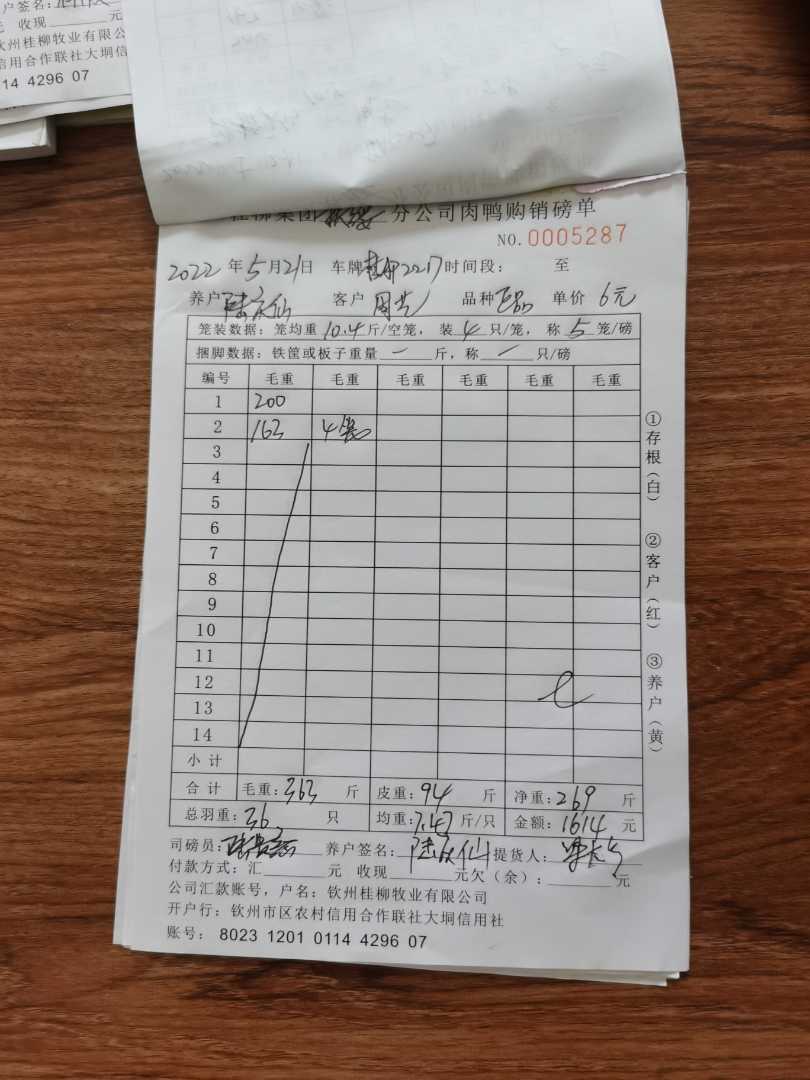 户签名:
元 收现 元
钦州桂柳牧业有限公
信用合作联社大垌信
14 4296 07
桂柳集团 分公司肉鸭购销磅单
NO.0005287
2022 年 5 月 21 日 车牌 2217 时间段: 至
养户 客户 品种 单价 6元
笼装数据: 笼均重 10.4 斤/空笼, 装 4 只/笼, 称 5 笼/磅
捆脚数据: 铁筐或板子重量 一 斤, 称 一 只/磅
编号 毛重 毛重 毛重 毛重 毛重 毛重
1 200
2 163 4笼
3
4
5
6
7
8
9
10
11
12
13
14
小计
合计 毛重:363 斤 皮重:94 斤 净重:269 斤
总羽重:36 只 均重:7.47 斤/只 金额:1614 元
司磅员: 养户签名: 提货人:
付款方式:汇 元 收现 元欠(余): 元
公司汇款账号, 户名: 钦州桂柳牧业有限公司
开户行: 钦州市区农村信用合作联社大垌信用社
账号: 8023 1201 0114 4296 07
①存根(白) ②客户(红) ③养户(黄)